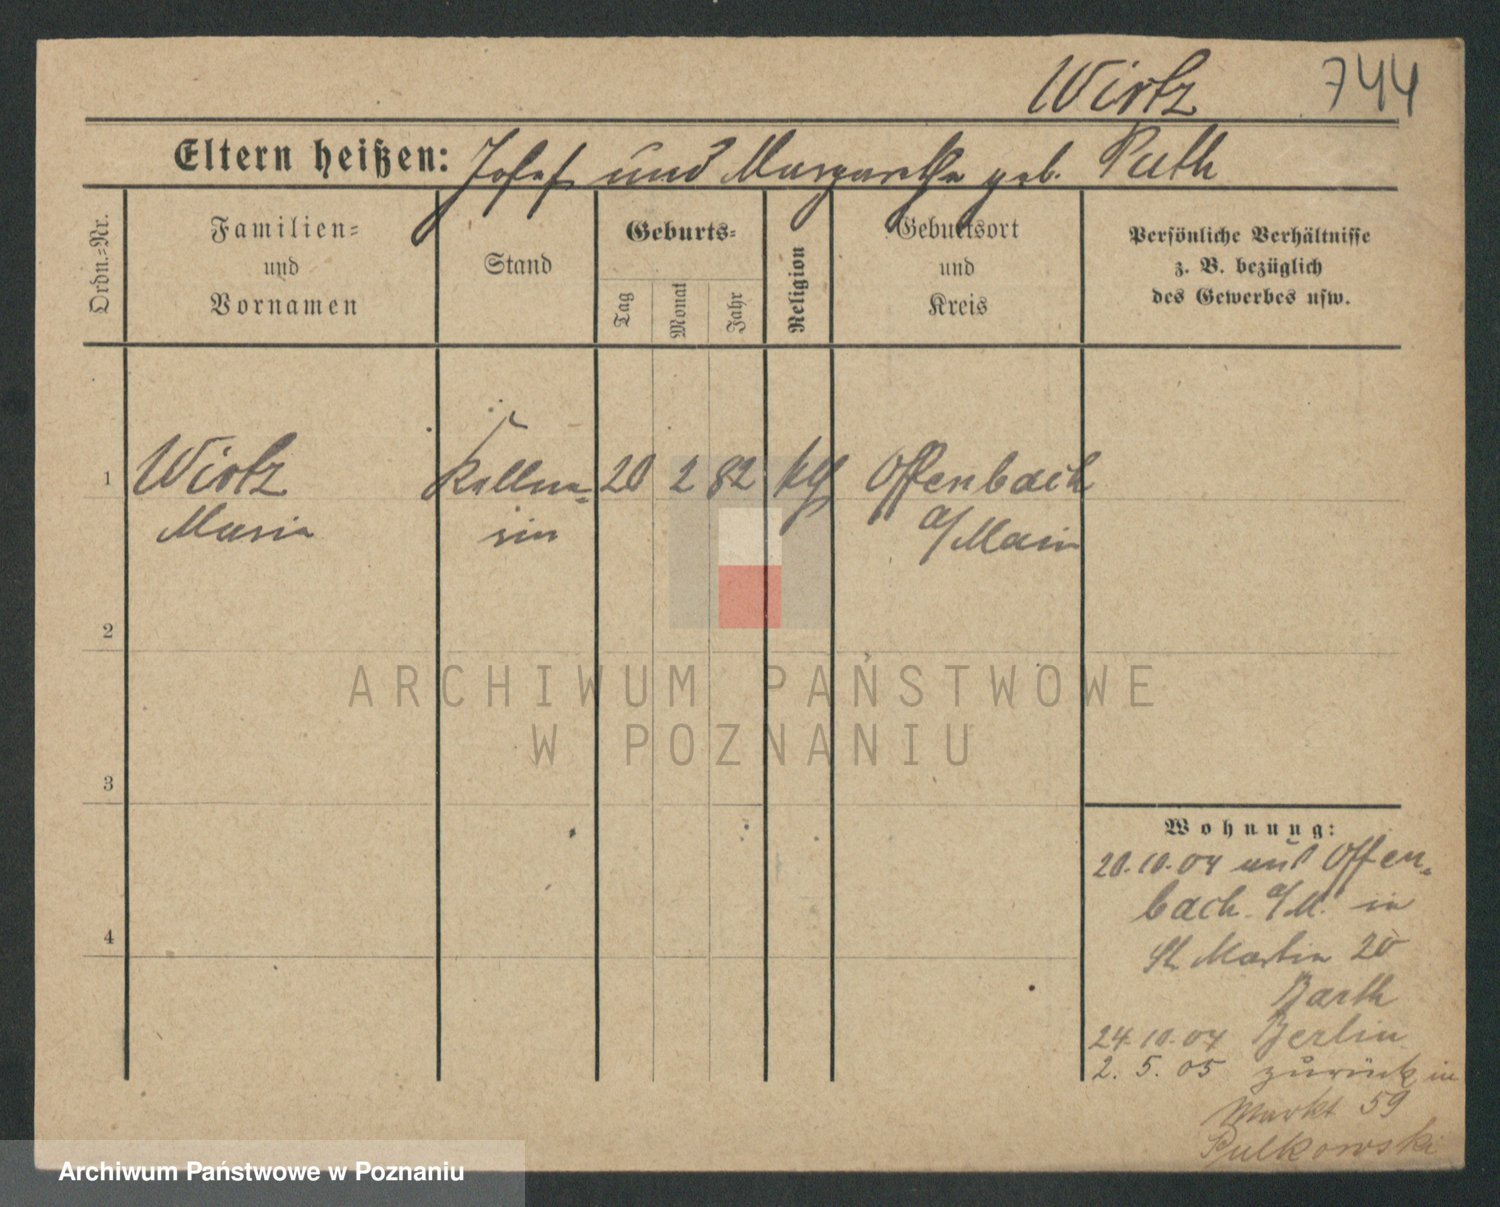 Wirtz 744
Eltern heißen: Josef und Margarethe geb. Puth
Ordn.-Nr.
Familien-
und
Vornamen
Stand
Geburts-
Tag
Monat
Jahr
Religion
Geburtsort
und
Kreis
Persönliche Verhältnisse
z. B. bezüglich
des Gewerbes usw.
1 Wirtz Kellne- 20 2 82 kth Offenbach
Maria rin a/Main
2
3
4
ARCHIWUM PAŃSTWOWE
W POZNANIU
Wohnung:
20.10.04 aus Offen-
bach a/M. in
St. Martin 20
Barth
24.10.04 Berlin
2. 5. 05 zurück in
Markt 59
Pulkowski
Archiwum Państwowe w Poznaniu